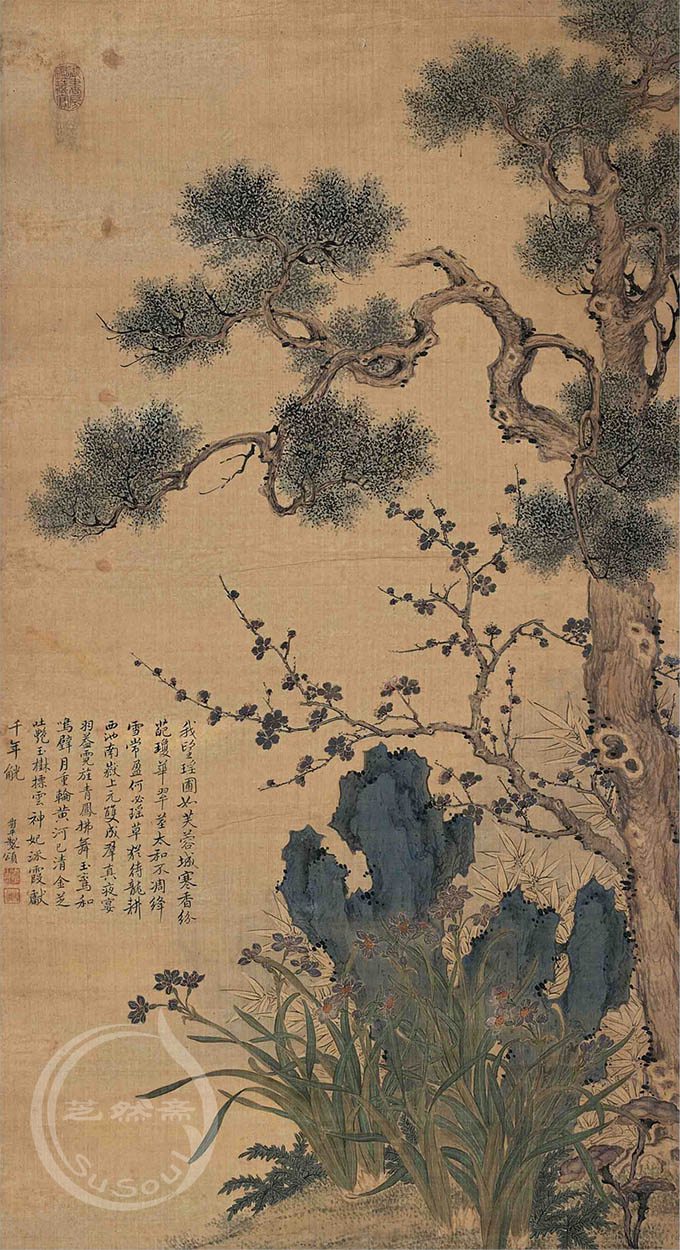 我望瑤圃如芙蓉城寒香紛
葩瓊華翠莖太和不凋絳
雪常盈何必瑤草猶待龍耕
西池南嶽上元雙成羣真夜宴
羽蓋霓旌青鳳拂舞玉鸞和
鳴璧月重輪黃河已清金芝
玉樹標雲神妃泳霞獻
千年觥
壽平製頌
芝然斋
SuSoul